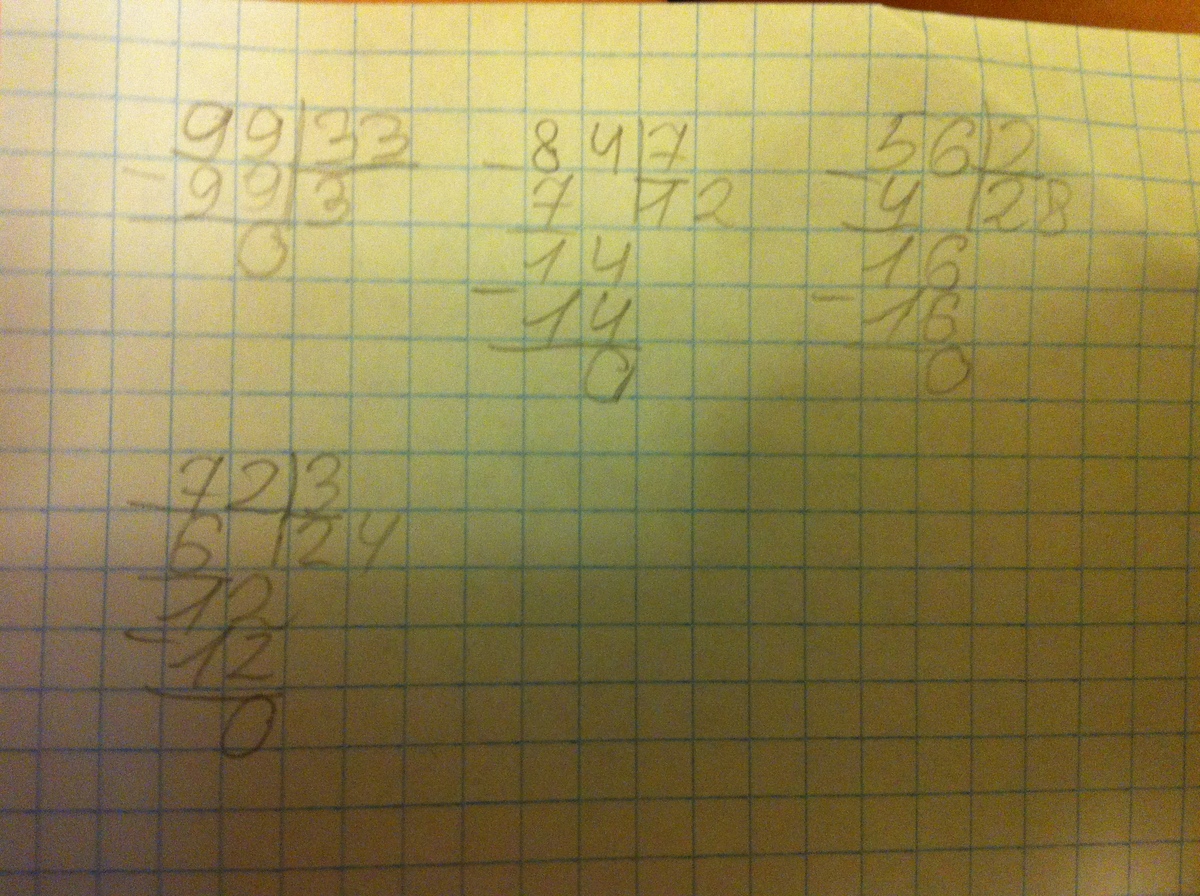 99 33
- 99 3
0
- 84 7
7 12
14
- 14
0
- 56 2
4 28
16
- 16
0
- 72 3
6 24
12
- 12
0